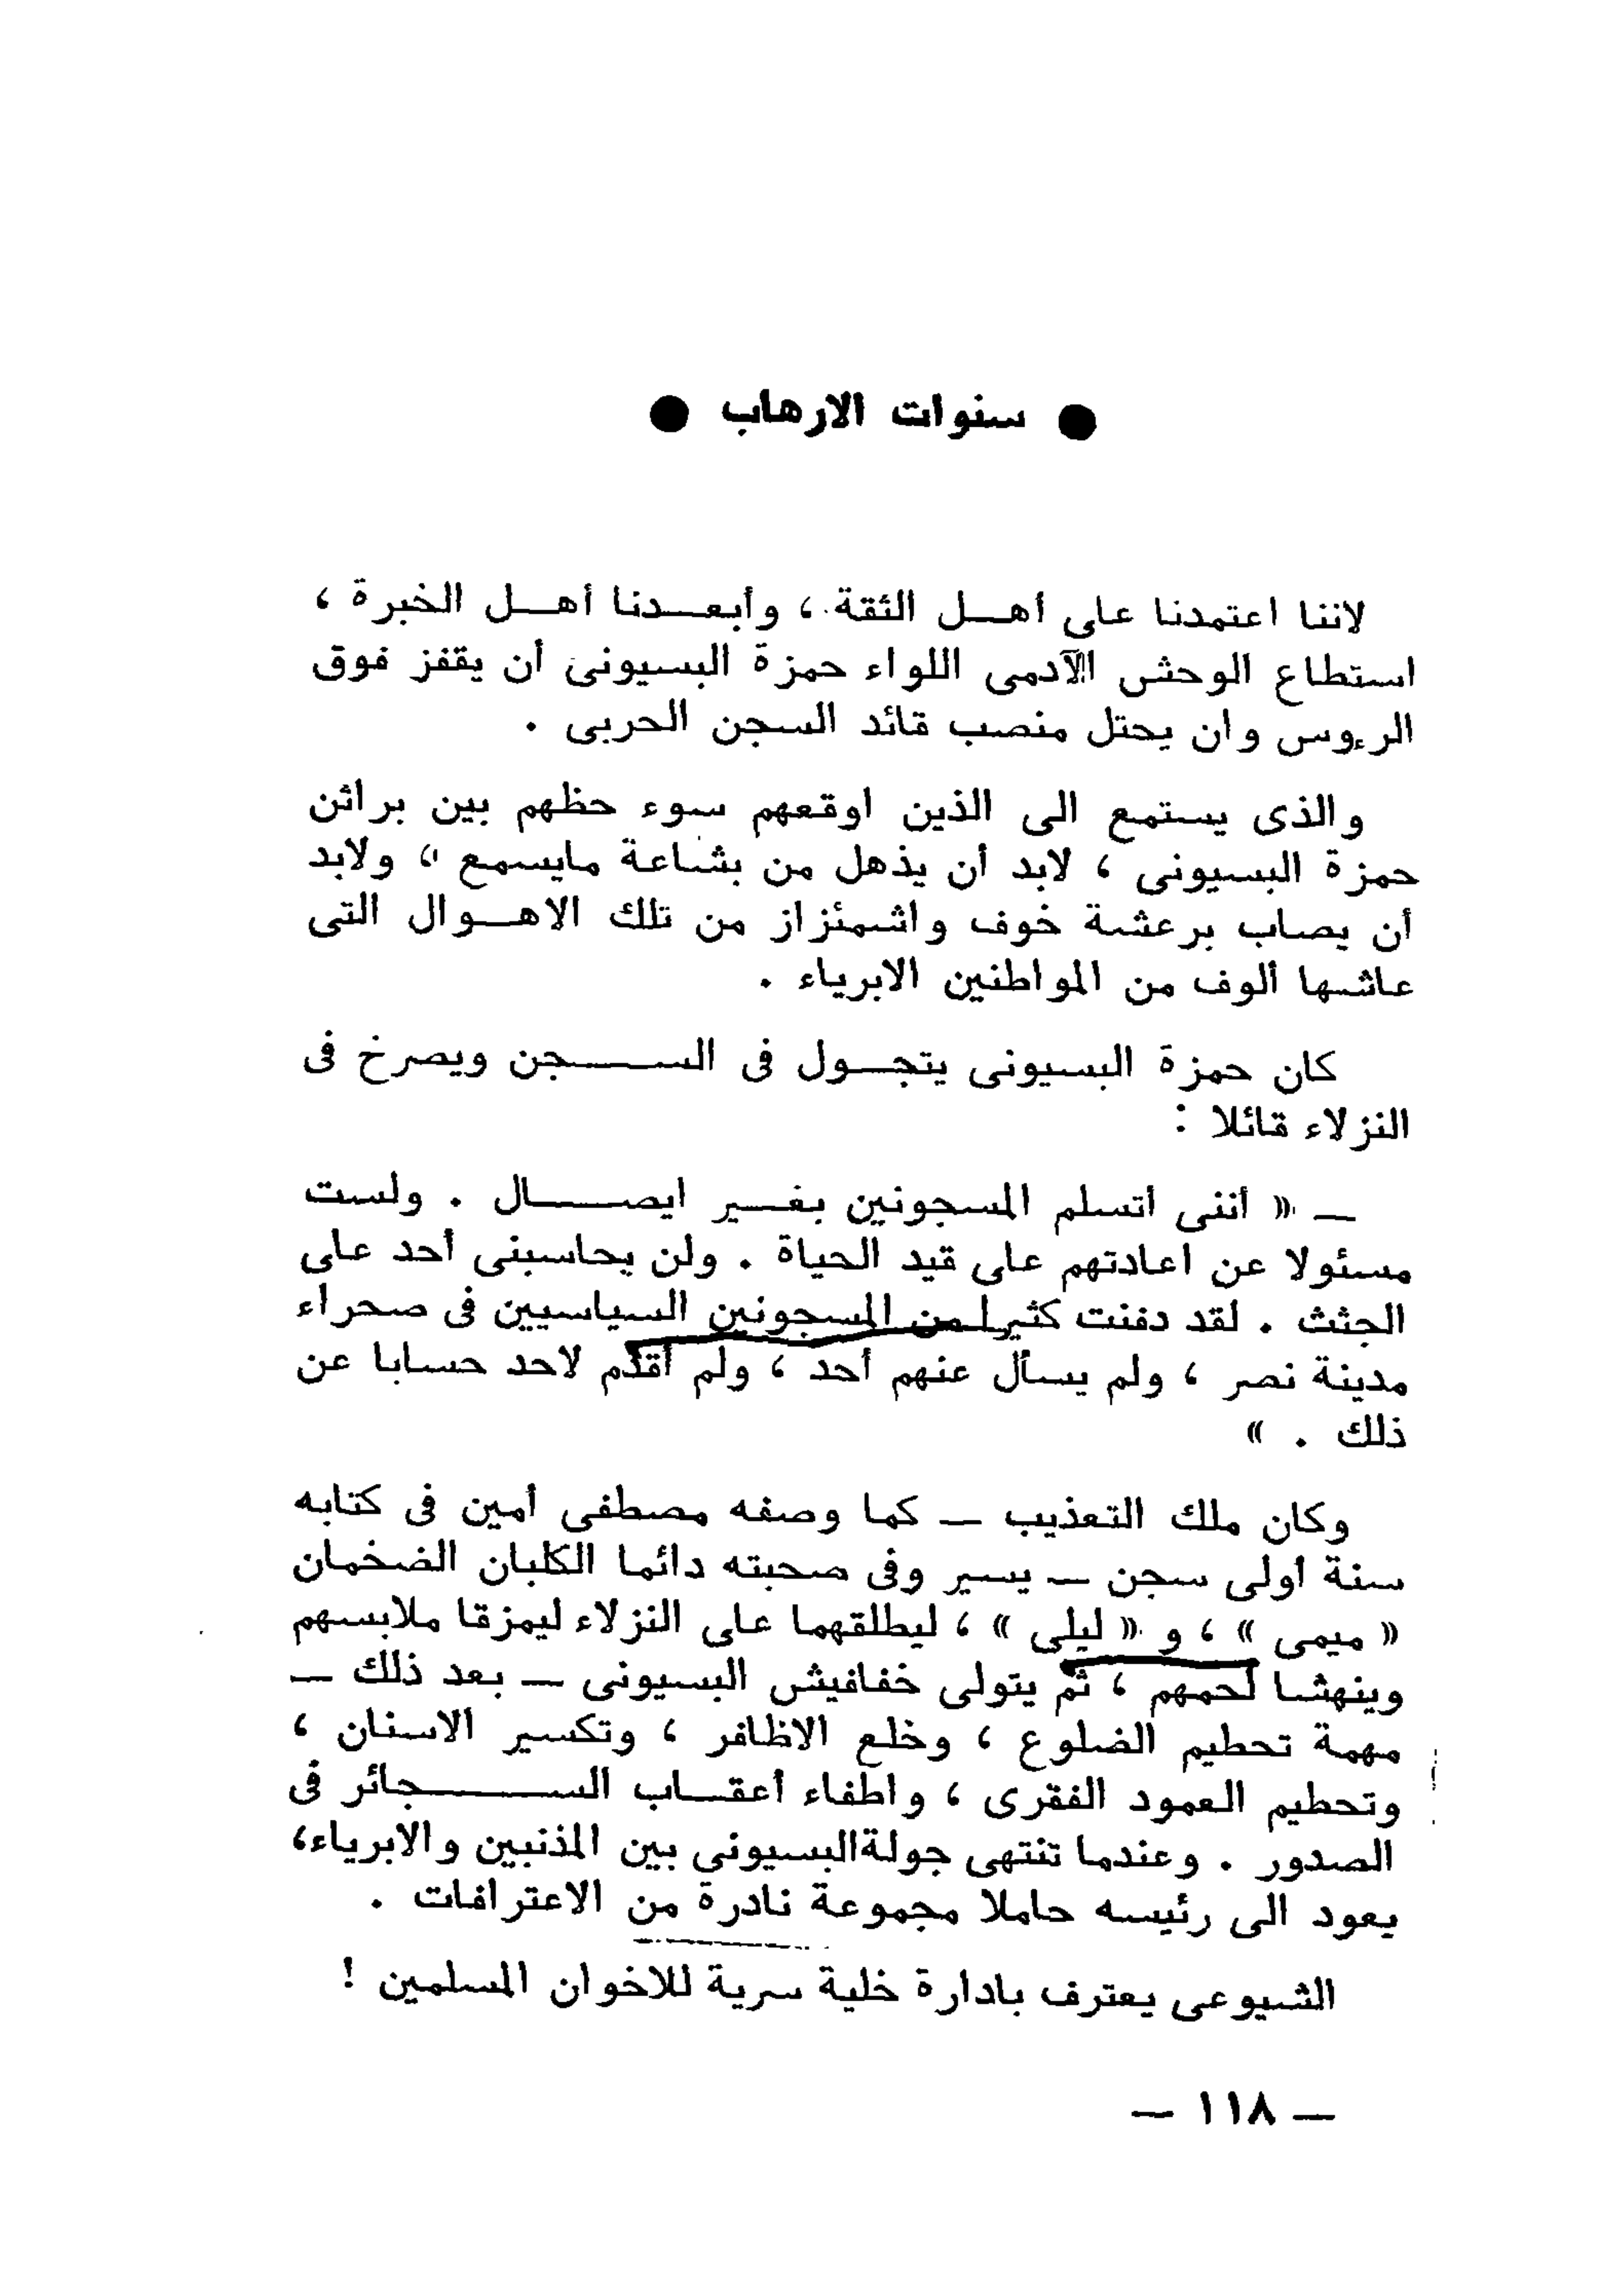 ● سنوات الارهاب ●
لاننا اعتمدنا على أهل الثقة ، وأبعدنا أهل الخبرة ،
استطاع الوحش الآدمى اللواء حمزة البسيونى أن يقفز فوق
الرءوس وان يحتل منصب قائد السجن الحربى .
والذى يستمع الى الذين اوقعهم سوء حظهم بين براثن
حمزة البسيونى ، لابد أن يذهل من بشاعة مايسمع ، ولابد
أن يصاب برعشة خوف واشمئزاز من تلك الاهوال التى
عاشها ألوف من المواطنين الابرياء .
كان حمزة البسيونى يتجول فى السجن ويصرخ فى
النزلاء قائلا :
— « أننى أتسلم المسجونين بغير ايصال . ولست
مسئولا عن اعادتهم على قيد الحياة . ولن يحاسبنى أحد على
الجثث . لقد دفنت كثيرا من المسجونين السياسيين فى صحراء
مدينة نصر ، ولم يسأل عنهم أحد ، ولم أقدم لاحد حسابا عن
ذلك . »
وكان ملك التعذيب — كما وصفه مصطفى أمين فى كتابه
سنة أولى سجن — يسير وفى صحبته دائما الكلبان الضخمان
« ميمى » ، و « ليلى » ، ليطلقهما على النزلاء ليمزقا ملابسهم
وينهشا لحمهم ، ثم يتولى خفافيش البسيونى — بعد ذلك —
مهمة تحطيم الضلوع ، وخلع الاظافر ، وتكسير الاسنان ،
وتحطيم العمود الفقرى ، واطفاء أعقاب السجائر فى
الصدور . وعندما تنتهى جولةالبسيونى بين المذنبين والابرياء،
يعود الى رئيسه حاملا مجموعة نادرة من الاعترافات .
الشيوعى يعترف بادارة خلية سرية للاخوان المسلمين !
— ١١٨ —